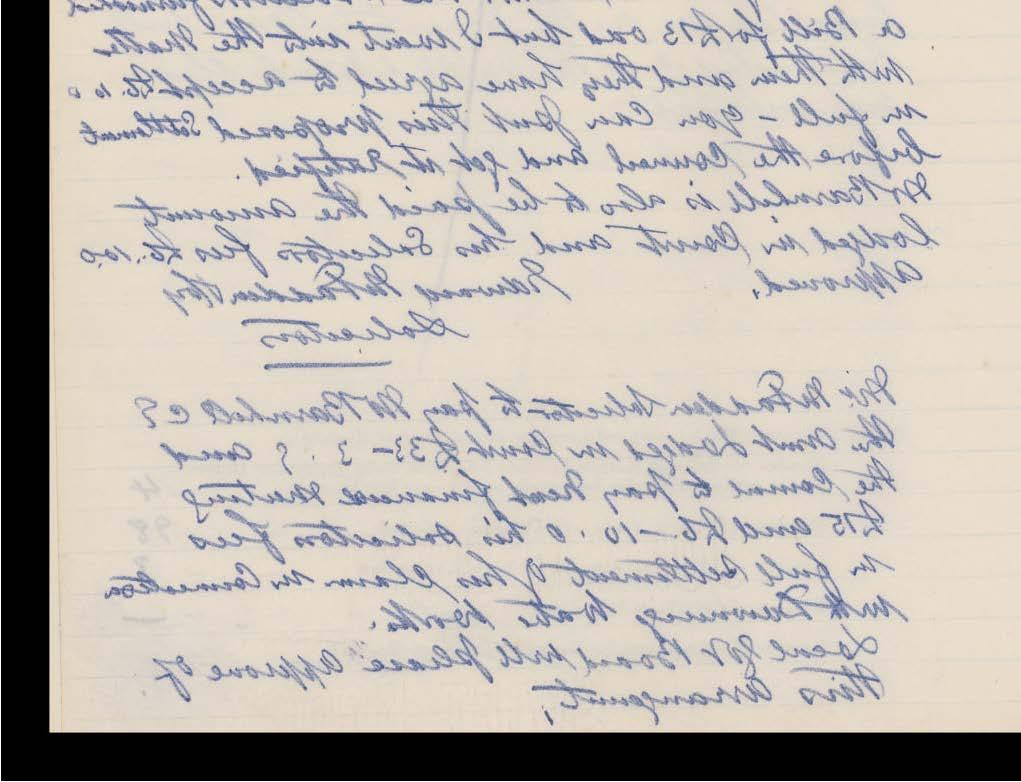 a Bill for £73 odd but I went into the matter
with them and they have agreed to accept £6.10.0
in full - you can put this proposed Settlement
before the Council and get it ratified.
Mr Barnhill is also to be paid the amount
lodged in Court and his Solicitors fees £6.10.0
Approved. Edward McFadden Hy
Solicitor
Mr. McFadden Solicitor to pay Mr Barnhill C E
the amt Lodged in Court £33-3.9 and
the Council to pay next finance meeting
£15 and £6-10.0 his solicitors fees
in full settlement of his claim in Connection
with Dunning Water Works.
Local Govt Board will please approve of
this arrangement,